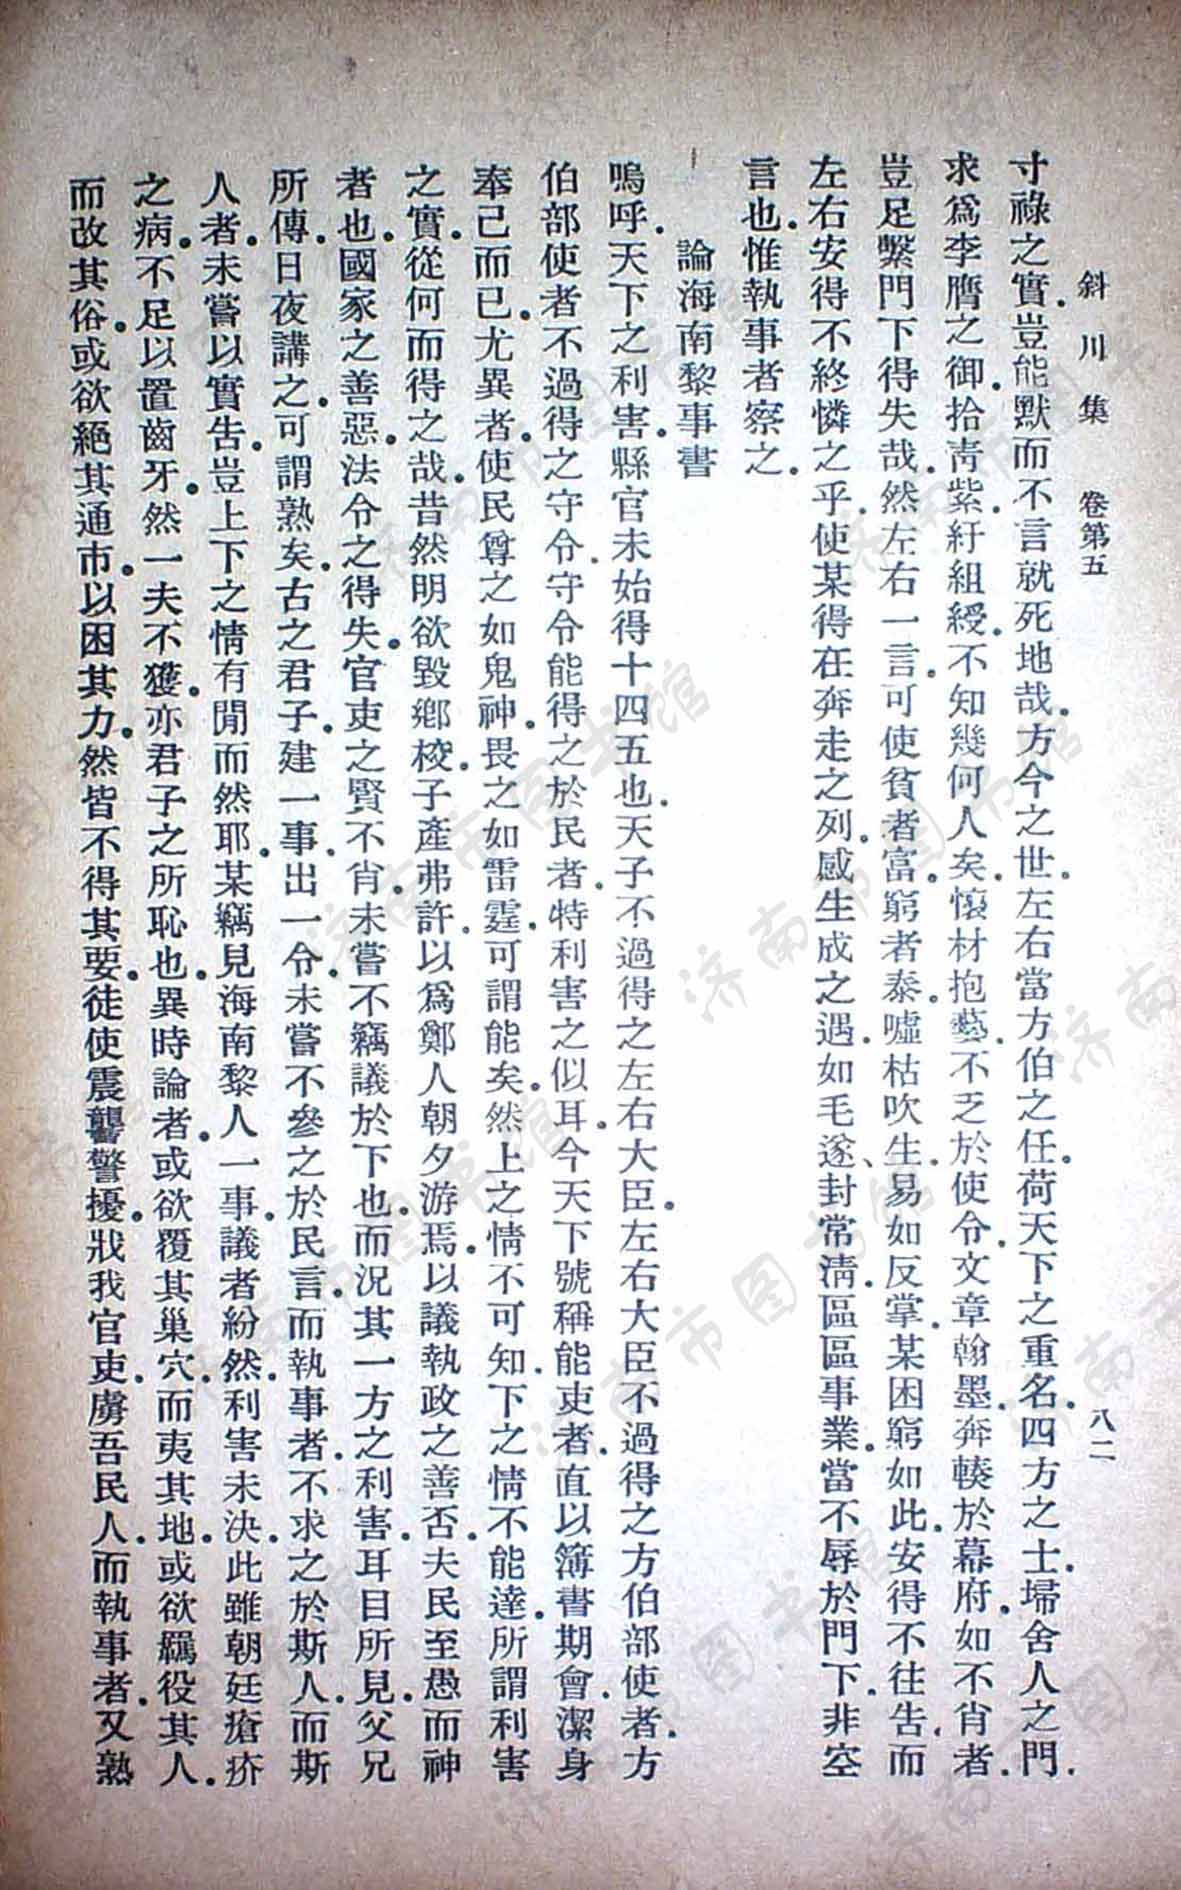 斜川集 卷第五 八二
寸祿之實.豈能默而不言就死地哉.方今之世.左右當方伯之任.荷天下之重名.四方之士.埽舍人之門.
求爲李膺之御.拾靑紫.紆組綬.不知幾何人矣.懷材抱藝.不乏於使令.文章翰墨.奔轃於幕府.如不肖者.
豈足繫門下得失哉.然左右一言.可使貧者富.窮者泰.噓枯吹生.易如反掌.某困窮如此.安得不往吿.而
左右安得不終憐之乎.使某得在奔走之列.感生成之遇.如毛遂、封常淸.區區事業.當不辱於門下.非空
言也.惟執事者察之.
論海南黎事書
嗚呼.天下之利害.縣官未始得十四五也.天子不過得之左右大臣.左右大臣不過得之方伯部使者.方
伯部使者不過得之守令.守令能得之於民者.特利害之似耳.今天下號稱能吏者.直以簿書期會.潔身
奉己而已.尤異者.使民尊之如鬼神.畏之如雷霆.可謂能矣.然上之情不可知.下之情不能達.所謂利害
之實.從何而得之哉.昔然明欲毀鄉校.子產弗許.以爲鄭人朝夕游焉.以議執政之善否.夫民至愚而神
者也.國家之善惡.法令之得失.官吏之賢不肖.未嘗不竊議於下也.而況其一方之利害.耳目所見.父兄
所傳.日夜講之.可謂熟矣.古之君子.建一事.出一令.未嘗不參之於民言.而執事者.不求之於斯人.而斯
人者.未嘗以實吿.豈上下之情有閒而然耶.某竊見海南黎人一事.議者紛然.利害未決.此雖朝廷瘡疥
之病.不足以置齒牙.然一夫不獲.亦君子之所恥也.異時論者.或欲覆其巢穴.而夷其地.或欲羈役其人.
而改其俗.或欲絕其通市.以困其力.然皆不得其要.徒使震讋警擾.戕我官吏.虜吾民人.而執事者.又熟